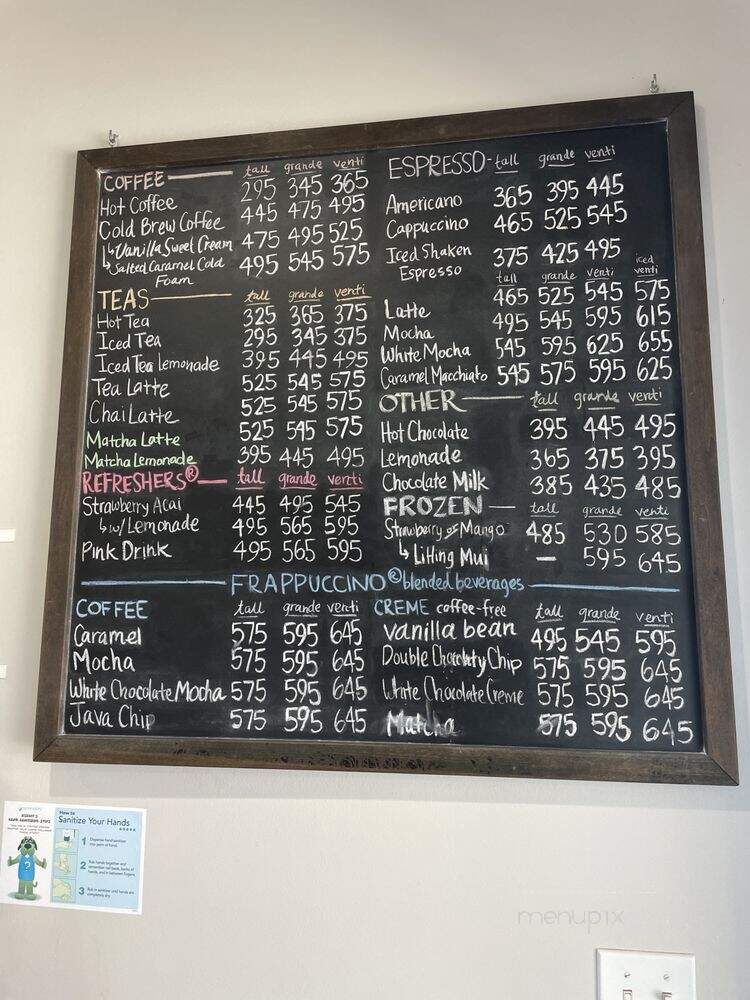 COFFEE tall grande venti
Hot Coffee 295 345 365
Cold Brew Coffee 445 475 495
↳Vanilla Sweet Cream 475 495 525
↳Salted Caramel Cold Foam 495 545 575
TEAS tall grande venti
Hot Tea 325 365 375
Iced Tea 295 345 375
Iced Tea Lemonade 395 445 495
Tea Latte 525 545 575
Chai Latte 525 545 575
Matcha Latte 525 545 575
Matcha Lemonade 395 445 495
REFRESHERS® tall grande venti
Strawberry Acai 445 495 545
↳w/ Lemonade 495 565 595
Pink Drink 495 565 595
ESPRESSO- tall grande venti
Americano 365 395 445
Cappuccino 465 525 545
Iced Shaken Espresso 375 425 495
tall grande venti iced venti
Latte 465 525 545 575
Mocha 495 545 595 615
White Mocha 545 595 625 655
Caramel Macchiato 545 575 595 625
OTHER tall grande venti
Hot Chocolate 395 445 495
Lemonade 365 375 395
Chocolate Milk 385 435 485
FROZEN tall grande venti
Strawberry or Mango 485 530 585
↳ Lifting Mui — 595 645
FRAPPUCCINO® blended beverages
COFFEE tall grande venti
Caramel 575 595 645
Mocha 575 595 645
White Chocolate Mocha 575 595 645
Java Chip 575 595 645
CREME coffee-free tall grande venti
vanilla bean 495 545 595
Double Chocolaty Chip 575 595 645
White Chocolate Creme 575 595 645
Matcha 575 595 645
How to
Sanitize Your Hands
1 Dispense hand sanitizer
into palm of hand.
2 Rub hands together and
remember nail beds, backs of
hands, and in between fingers.
3 Rub in sanitizer until hands are
completely dry.
menupix